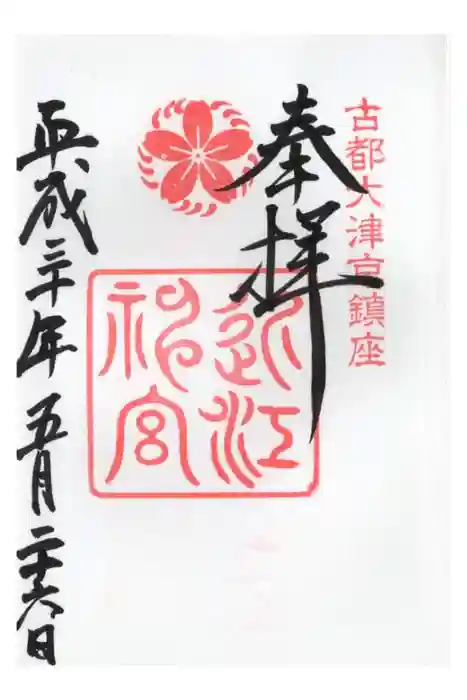 古都大津京鎮座
奉拝
近江神宮
平成三十年五月二十六日